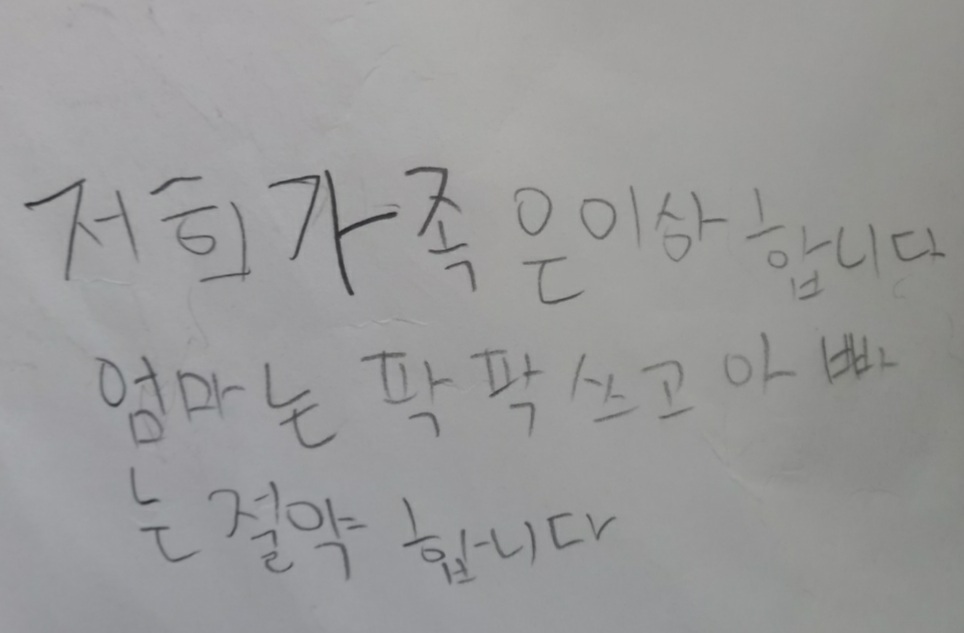 저희 가족은이상합니다
엄마는 팍팍쓰고 아빠
는 절약 합니다